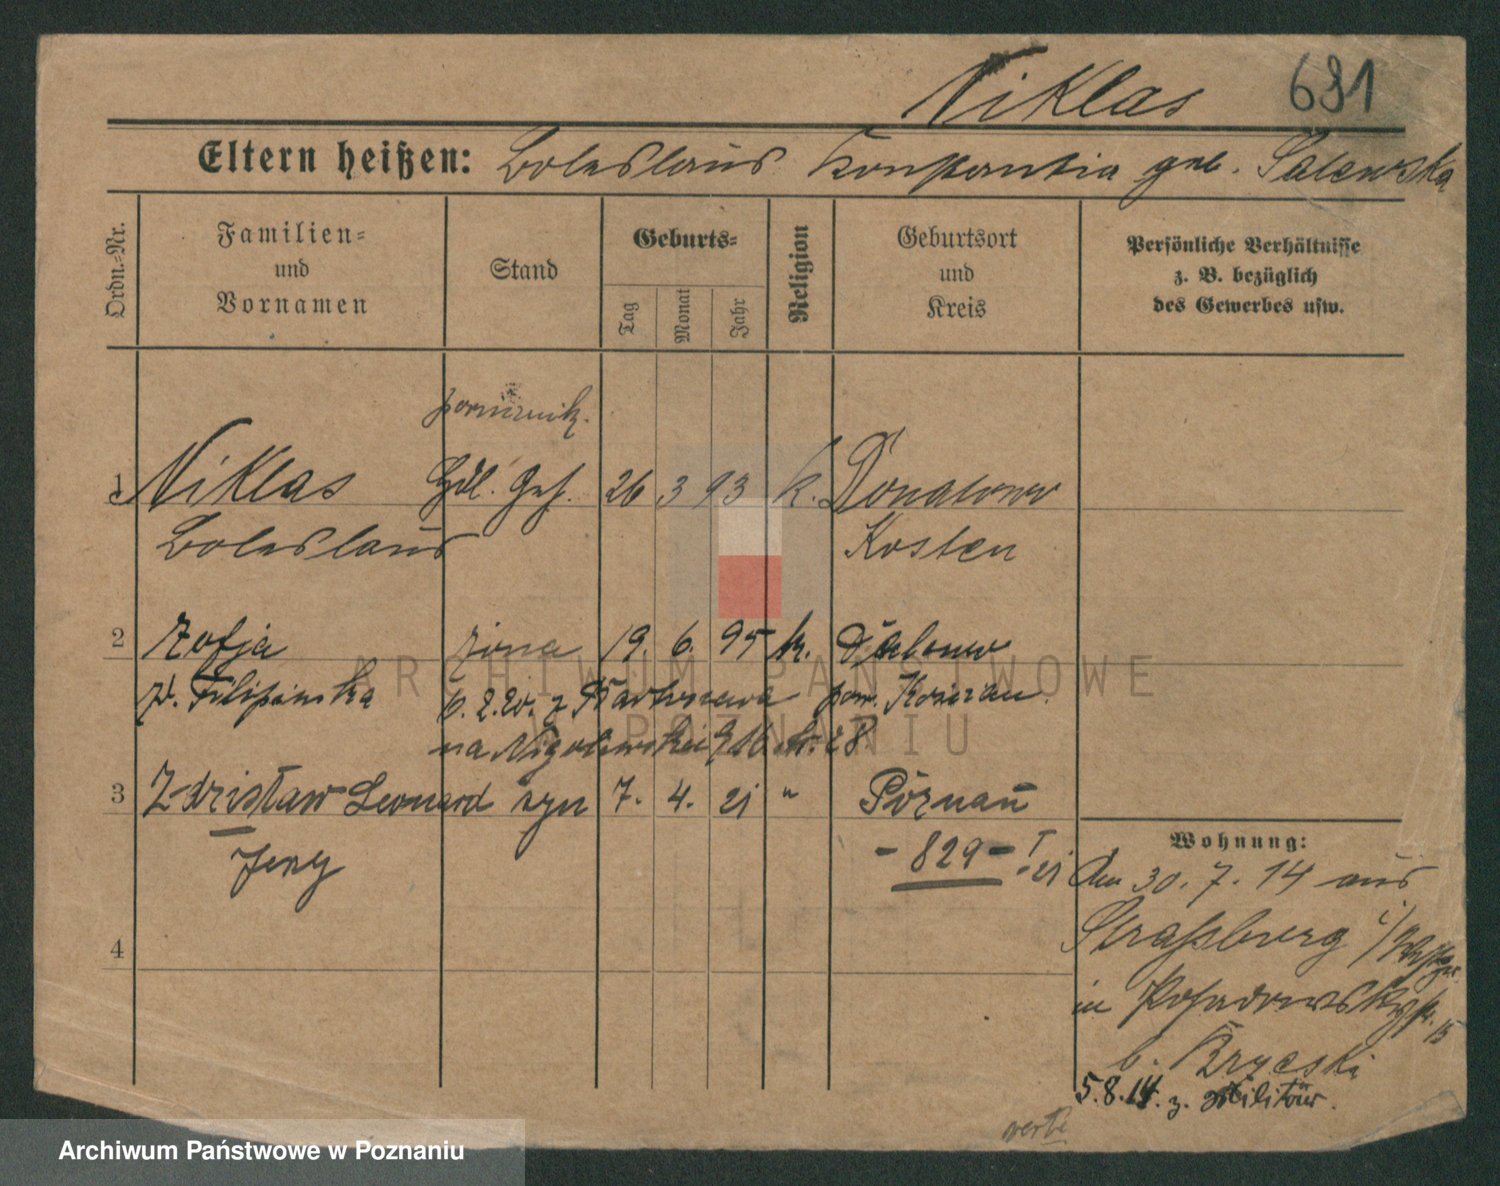 Niklas 681
Eltern heißen: Boleslaus Konstantia geb. Salewska
Ordn.-Nr.
Familien-
und
Vornamen
Stand
Geburts-
Tag
Monat
Jahr
Religion
Geburtsort
und
Kreis
Persönliche Verhältnisse
z. B. bezüglich
des Gewerbes usw.
1 Niklas Hdl. Geh. 26 3 93 k. Donatowo
Boleslaus Kosten
2 Zofja żona 19. 6. 95 k.
z d. Filipinska 6.2.20. z
3 Zdzisław Leonard syn 7. 4. 21 " Poznań
Jerzy
- 829 - I 21
4
Wohnung:
Am 30. 7. 14 aus
Straßburg i/Westpr.
in Posadowskystr. 15
b. Brzeski
5.8.14. z. Militär.
ARCHIWUM PAŃSTWOWE
W POZNANIU
Archiwum Państwowe w Poznaniu